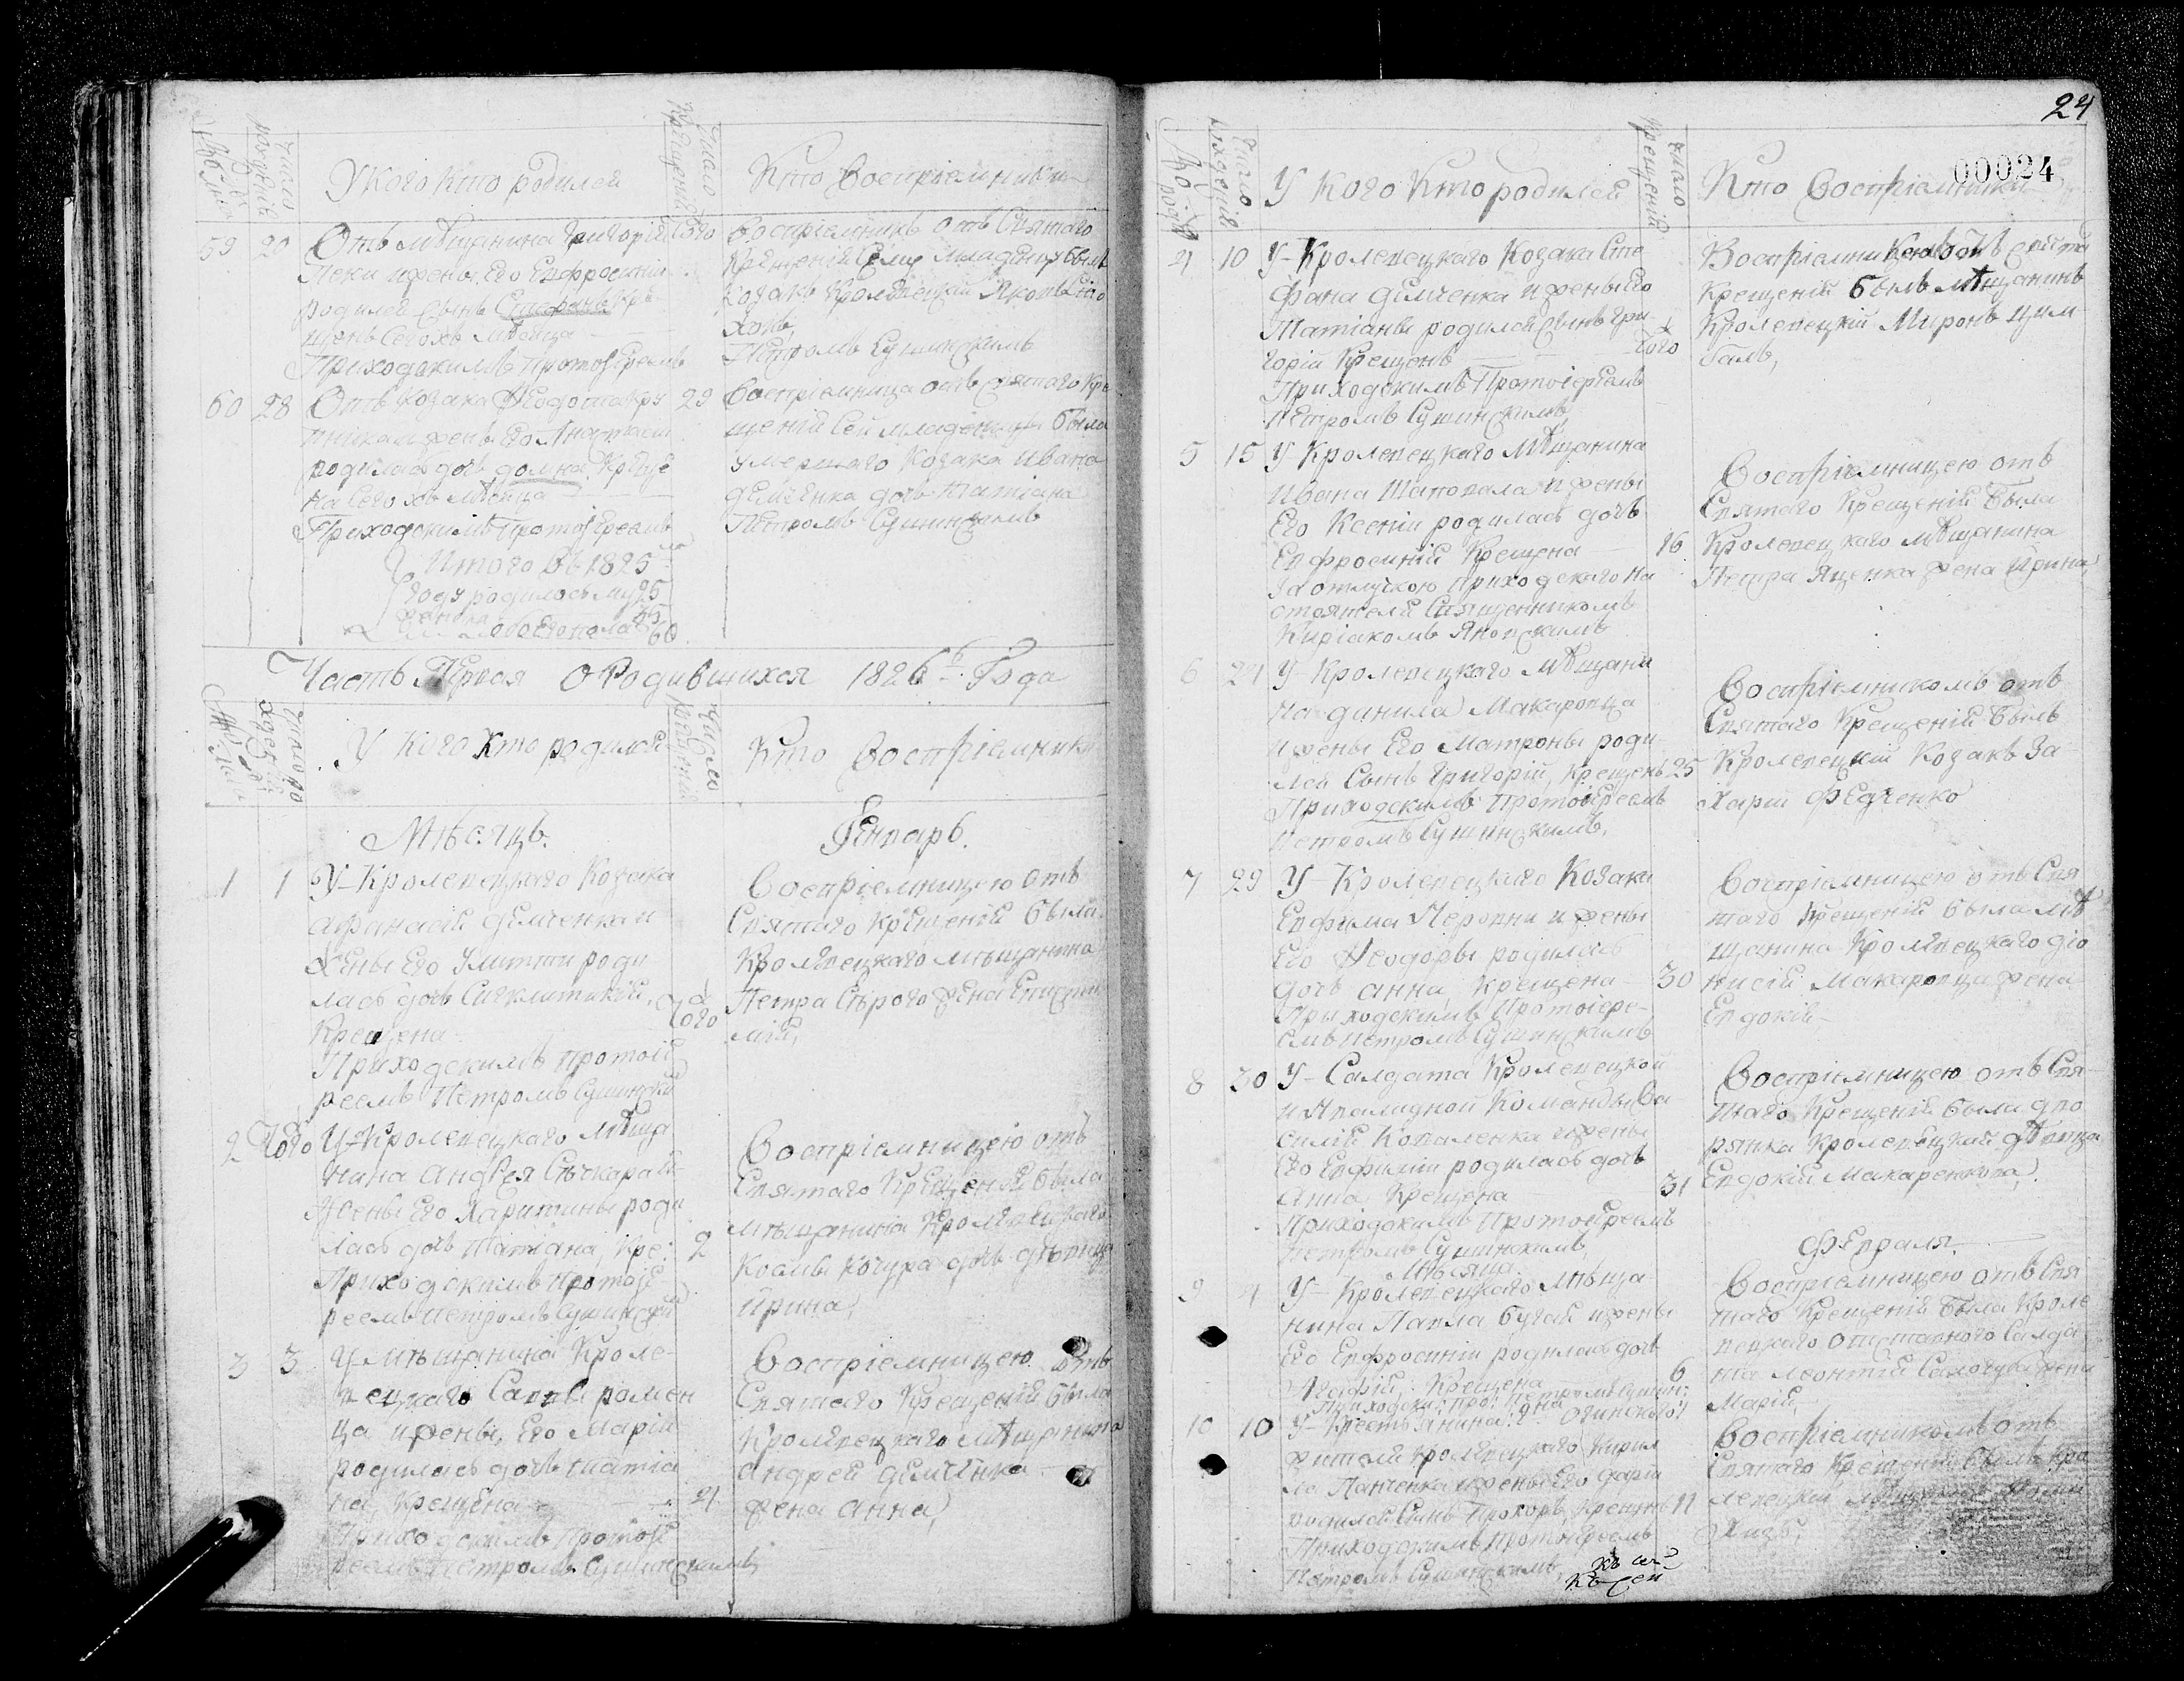 Число рожденій
У кого кто родился
Число крещеній
Кто Воспріемники
59 20 Отъ мѣщанина Григорія
и жены Его Евфросиніи
родился Сынъ Стефанъ Кре
щенъ Сего хъ мѣсяца
Приходскимъ Протоіереемъ
Того
Воспріемникъ отъ Святаго
Крещенія Сему младенцу былъ
Козакъ Кролевецкій Яковъ
Петромъ Сушинскимъ
60 28 Отъ козака Ѳеодота
жены Его Анастасіи
родилась дочь домна Креще
на Сего хъ мѣсяца
Приходскимъ Протоіереемъ
29
Воспріемница отъ святаго Кре
щенія Сей младеницы была
умершаго Козака Ивана
демченка дочь Татіана
Петромъ Сушинскимъ
Итого Въ 1825мъ
году родилось муж 25
женска 35
обоего пола 60
Часть Первая О Родившихся 1826го Года
Число рожденій
У кого кто родился
Число крещеній
Кто Воспріемники
Мѣсяцъ.
Генварь.
1 1 У Кролевецкаго Козака
афанасія демченка и
Жены Его Улитты роди
лась дочь Сигклитикія,
Крещена
Приходскимъ протоіе
реемъ Петромъ Сушинским
Того
Воспріемницею отъ
Святаго Крещенія была
Кролевецкаго мѣщанина
Петра Сѣрого жена Еписти
мія,
2 Того У Кролевецкаго мѣща
нина Андрея
Жены Его Харитины роди
лась дочь Татіана, Кре:
Приходскимъ протоіе
реемъ Петромъ Сушински
2
Воспріемницею отъ
Святаго Крещенія была
мѣщанина Кролевецкаго
Космы Кочура дочь дѣвица
Ирина,
3 3 У мѣщанина Кроле
вецкаго Саввы ромен
ца и жены Его Маріи
родилась дочь татіа
на, Крещена
Приходскимъ протоіе
реемъ Петромъ Сушинскимъ
4
Воспріемницею отъ
Святаго Крещенія была
Кролевецкаго мѣщанина
андрея демченка
жена анна,
24
00024
Число рожденій
У кого кто родился
Число крещеній
Кто Воспріемники
4 10 У Кролевецкаго Козака Сте
фана демченка и жены Его
Татіаны родился Сынъ Гри
горій Крещенъ
Приходскимъ Протоіереемъ
Петромъ Сушинскимъ,
Того
Воспріемникомъ отъ Свята
Крещенія былъ мѣщанинъ
Кролевецкій Миронъ Цим
балъ,
5 15 У Кролевецкаго мѣщанина
Ивана Шаповала и жены
Его Ксеніи родилась дочь
Евфросинія Крещена
За отлучкою приходскаго на
стоятеля Священникомъ
Киріакомъ Яновскимъ
16
Воспріемницею отъ
Святаго Крещенія была
Кролевецкаго мѣщанина
Петра Яценка жена Ирина,
6 24 У Кролевецкаго мѣщани
на данила Макаровца
и жены Его Матроны роди
лся Сынъ Григорій, Крещенъ
Приходскимъ протоіереемъ
Петромъ Сушинскимъ,
25
Воспріемникомъ отъ
Святаго Крещенія былъ
Кролевецкій Козакъ За
харій Федченко
7 29 У Кролевецкаго Козака
Евфима и жены
Его Ѳеодоры родилась
дочь анна, Крещена
Приходскимъ Протоіере
емъ Петромъ Сушинскимъ
30
Воспріемницею отъ Свя
таго Крещенія была мѣ
щанина Кролевецкаго діо
нисія Макаровца жена
Евдокія
8 30 У Салдата Кролевецкой
инвалидной Команды Ва
силія Коваленка и жены
Его Евфиміи родилась дочь
Анна Крещена
Приходскимъ Протоіереемъ
Петромъ Сушинскимъ,
31
Воспріемницею отъ Свя
таго Крещенія была дво
рянка Кролевецкая дѣвица
Евдокія Макаренкова,
Мѣсяца
Февраля.
9 4 У Кролевецкаго мѣща
нина Павла Бугая и жены
Его Евфросиніи родилась дочь
Агафія, Крещена
Приходски: про: Петромъ Сушин:
6
Воспріемницею отъ Свя
таго Крещенія была Кроле
вецкаго отставного Салда
та Леонтія жена
Марія,
10 10 У Крестьянина
жителя Кролевецкаго Кирил
ла Панченка и жены Его даріи
родился Сынъ Прохоръ, Крещенъ
Приходскимъ Протоіереемъ
Петромъ Сушинскимъ,
11
Воспріемникомъ отъ
Святаго Крещенія былъ Кро
левецкій мѣщанинъ
Къ сей
Къ сей